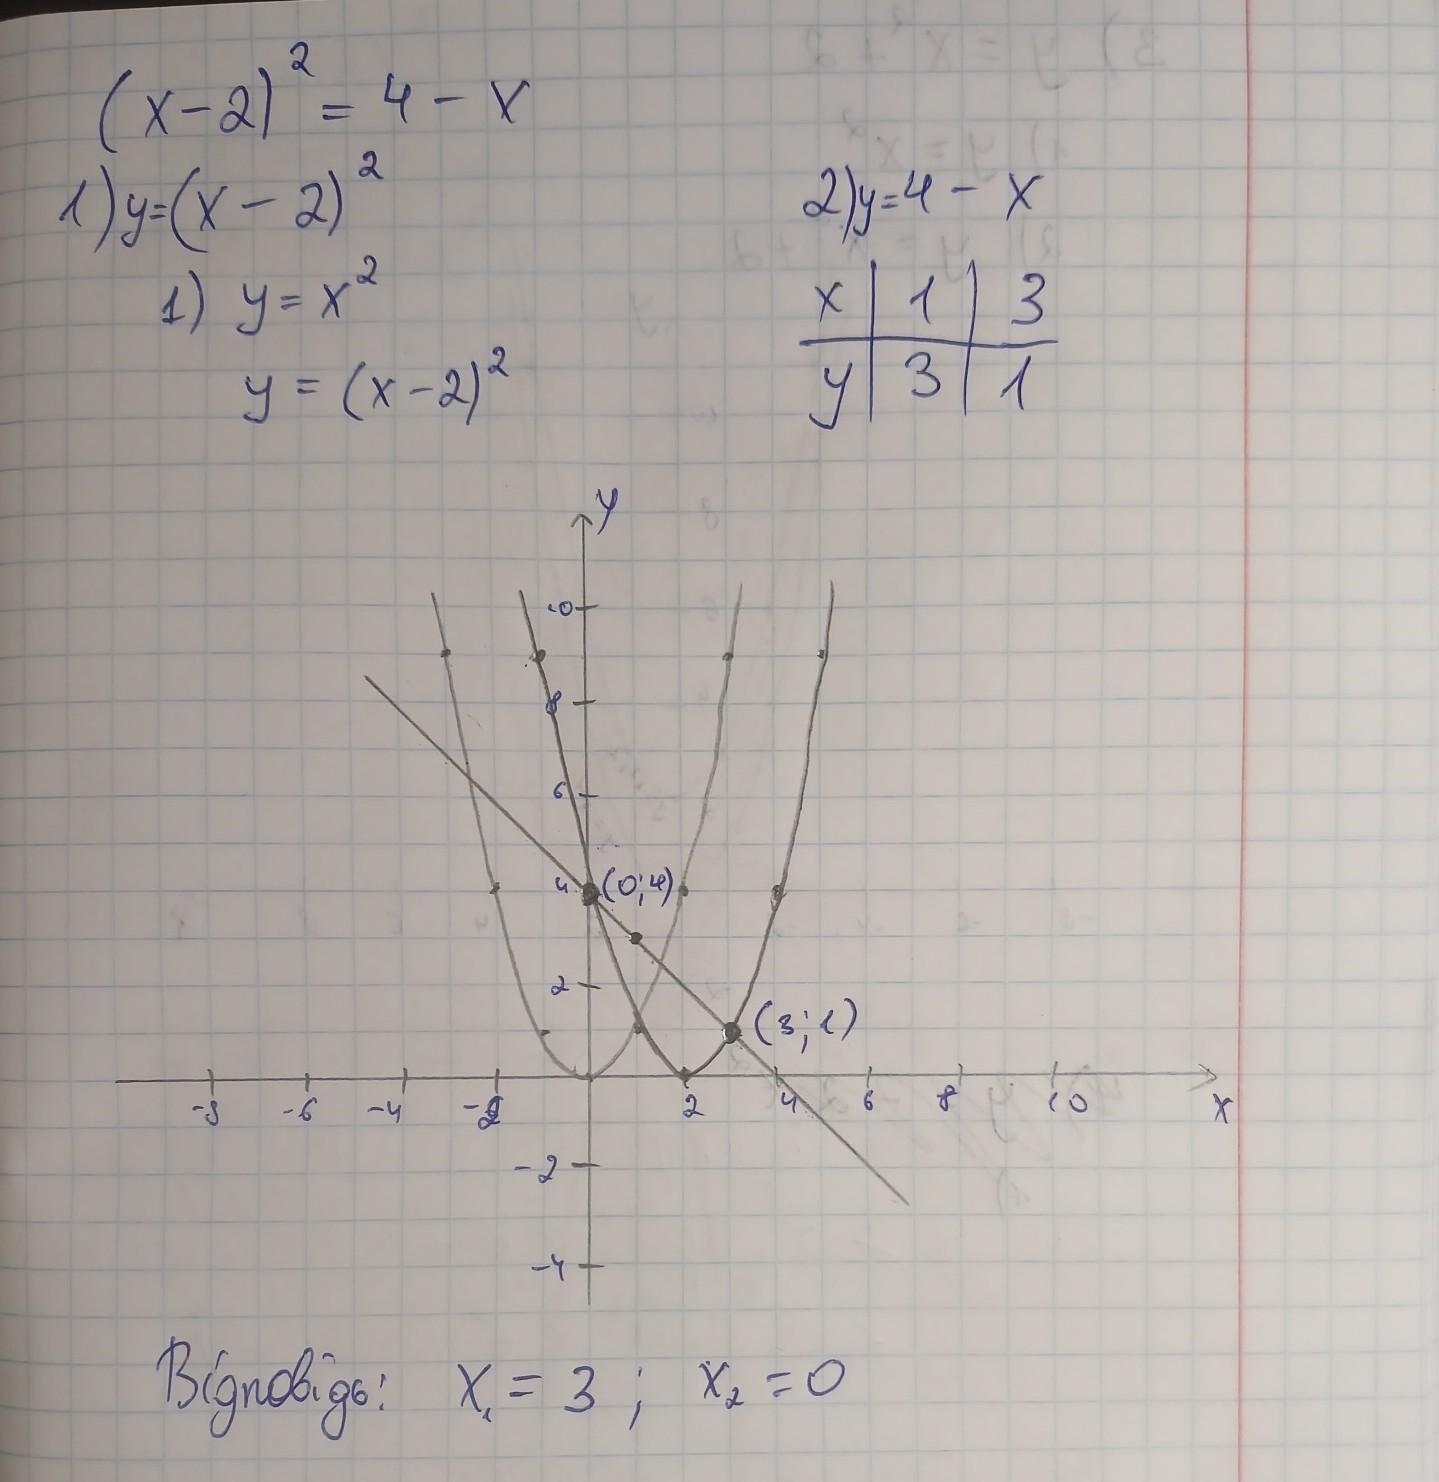 (x-2)² = 4 - x
1) y=(x - 2)²
2) y=4 - x
1) y = x²
y = (x-2)²
x | 1 | 3
y | 3 | 1
y
10
8
6
4 (0;4)
2
(3;1)
-8 -6 -4 -2 2 4 6 8 10
x
-2
-4
Відповідь: x₁ = 3 ; x₂ = 0